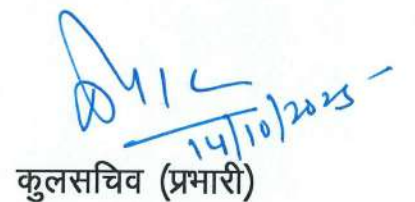 14/10/2025
कुलसचिव (प्रभारी)